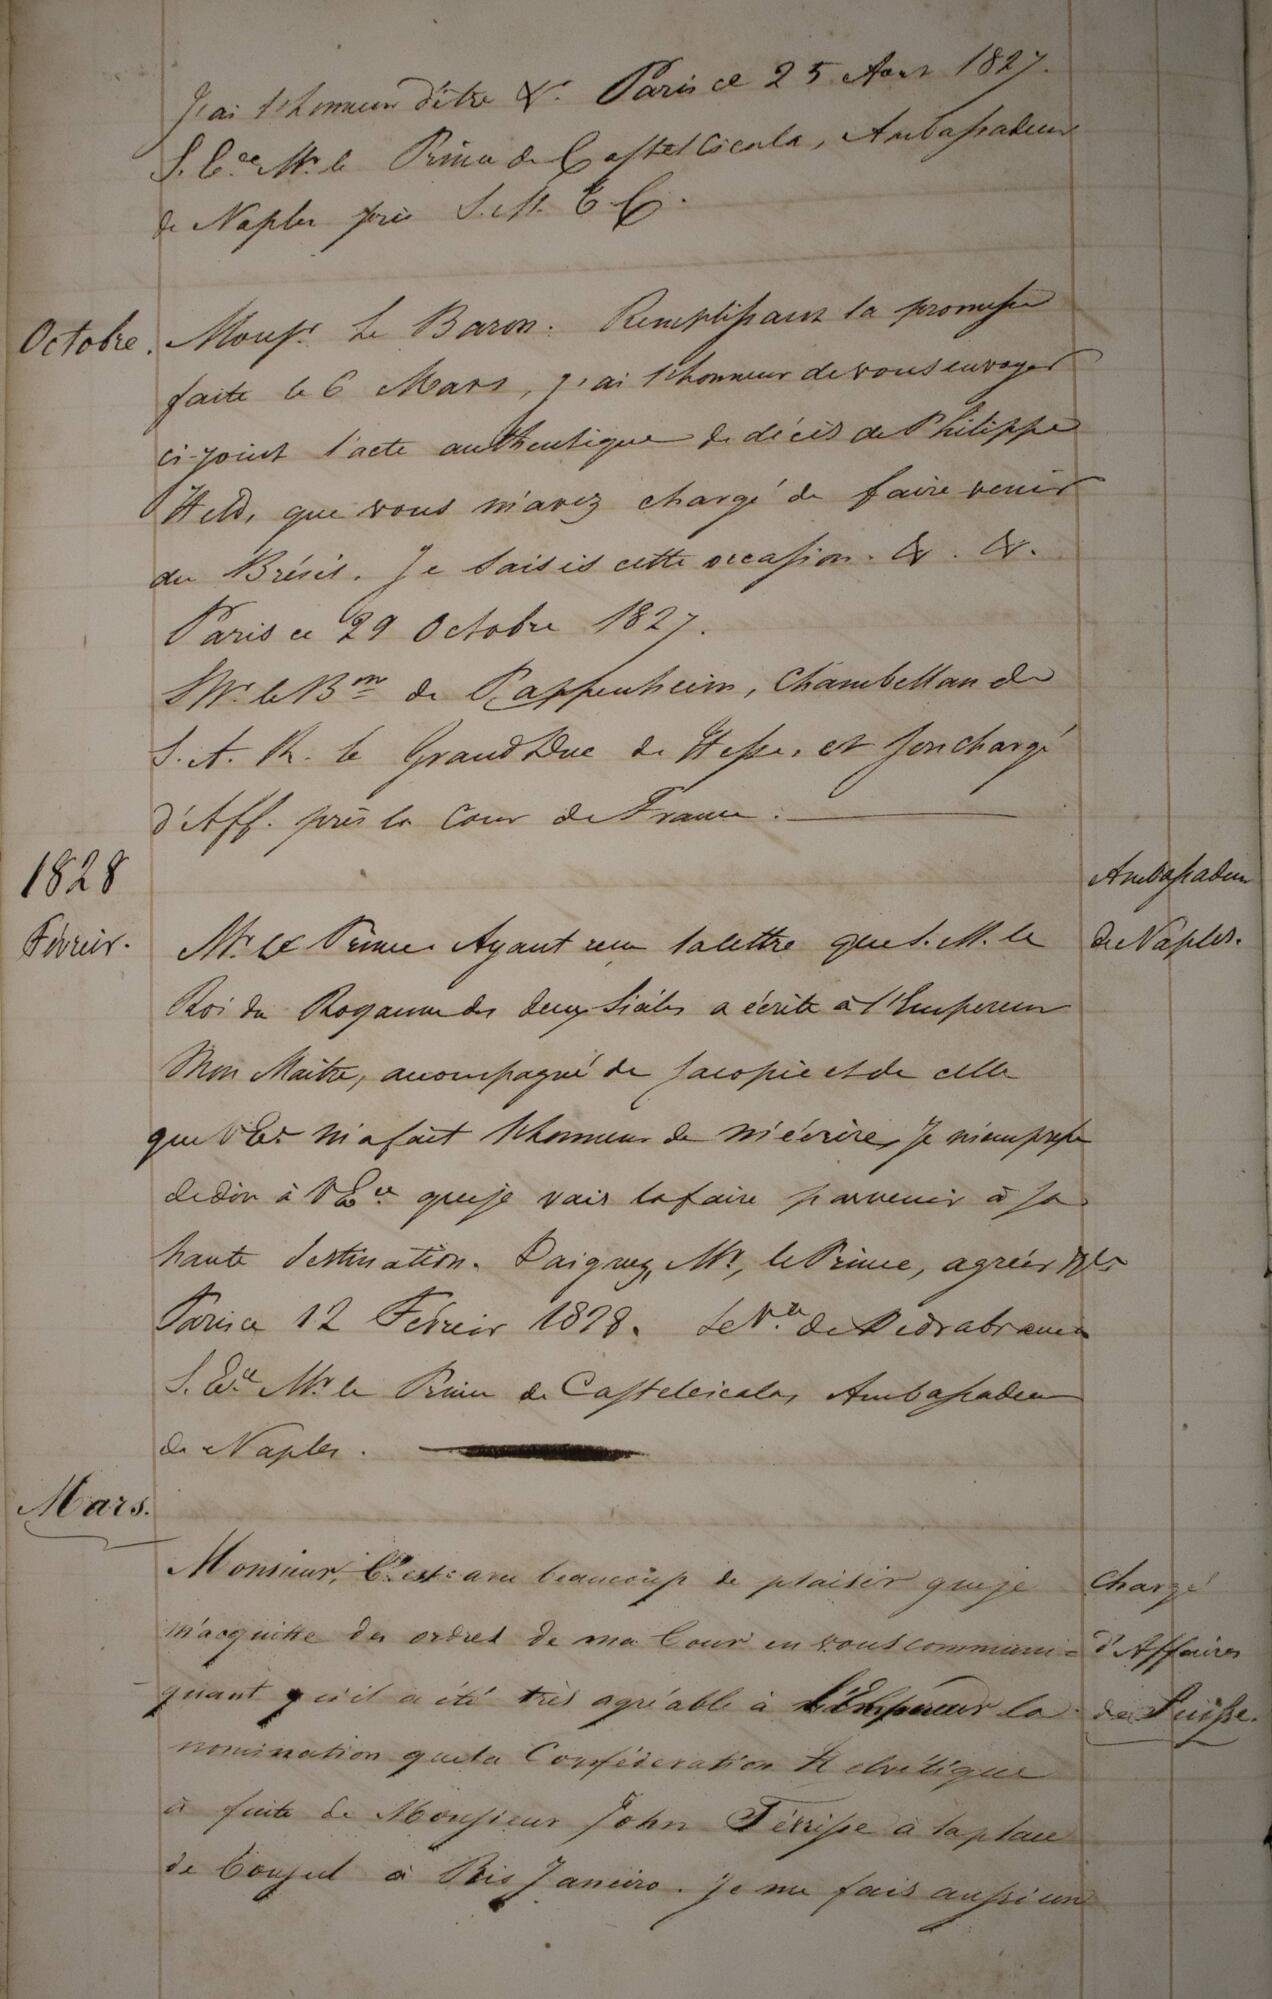 J'ai l'honneur d'être &. Paris ce 25 Aout 1827.
S. Ece. Mr. le Prince de Castelcicala, Ambassadeur
de Naples près S. M. T. C.
Octobre.
Monsr. Le Baron. Remplissant la promesse
faite le 6 Mars, j'ai l'honneur de vous envoyer
ci-joint l'acte authentique de décès de Philippe
Held, que vous m'avez chargé de faire venir
du Brésil. Je saisis cette occasion. &. &.
Paris ce 29 Octobre 1827.
Mr. le Bon de Pappenheim, Chambellan de
S. A. R. le Grand Duc de Hesse, et son chargé
d'Aff. près la Cour de France.
1828
Février.
Ambassadeur
de Naples.
Mr. le Prince Ayant reçu la lettre que S. M. le
Roi du Royaume des deux Siciles a écrite à l'Empereur
Mon Maître, accompagné de sa copie et de celle
que V. Ece m'a fait l'honneur de m'écrire, Je m'empresse
de dire à V Ece que je vais la faire parvenir à sa
haute destination. Daignez, Mr, le Prince, agréer
Paris ce 12 Février 1828. Le Vte de Pedrabranca
S. Ece Mr. le Prince de Castelcicala, Ambassadeur
de Naples.
Mars.
Chargé
d'Affaires
de Suisse.
Monsieur, C'est avec beaucoup de plaisir que je
m'acquitte des ordres de ma Cour en vous communi=
quant qu'il a été très agréable à l'Empereur la
nomination que la Confédération Helvétique
a faite de Monsieur John à la place
de Consul à Rio Janeiro. Je me fais aussi un